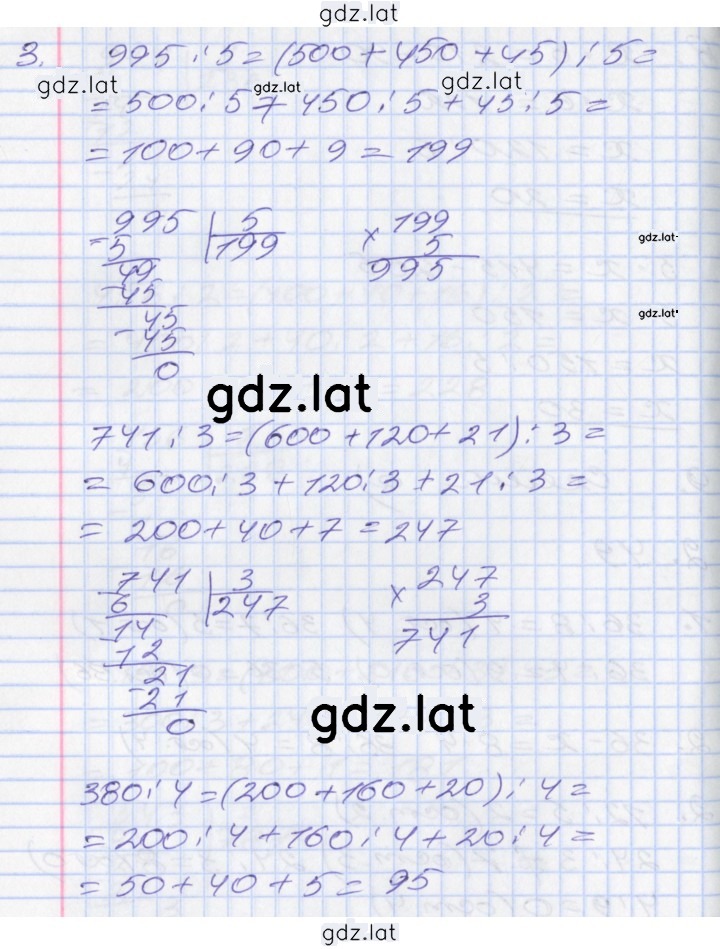 gdz.lat
3. 995 : 5 = (500 + 450 + 45) : 5 =
gdz.lat gdz.lat gdz.lat
= 500 : 5 + 450 : 5 + 45 : 5 =
= 100 + 90 + 9 = 199
995 | 5 × 199
- 5 199 5 gdz.lat
49 995
- 45
45 gdz.lat
- 45
0
gdz.lat
741 : 3 = (600 + 120 + 21) : 3 =
= 600 : 3 + 120 : 3 + 21 : 3 =
= 200 + 40 + 7 = 247
- 741 | 3 × 247
6 247 3
14 741
- 12
21
- 21
0
gdz.lat
380 : 4 = (200 + 160 + 20) : 4 =
= 200 : 4 + 160 : 4 + 20 : 4 =
= 50 + 40 + 5 = 95
gdz.lat